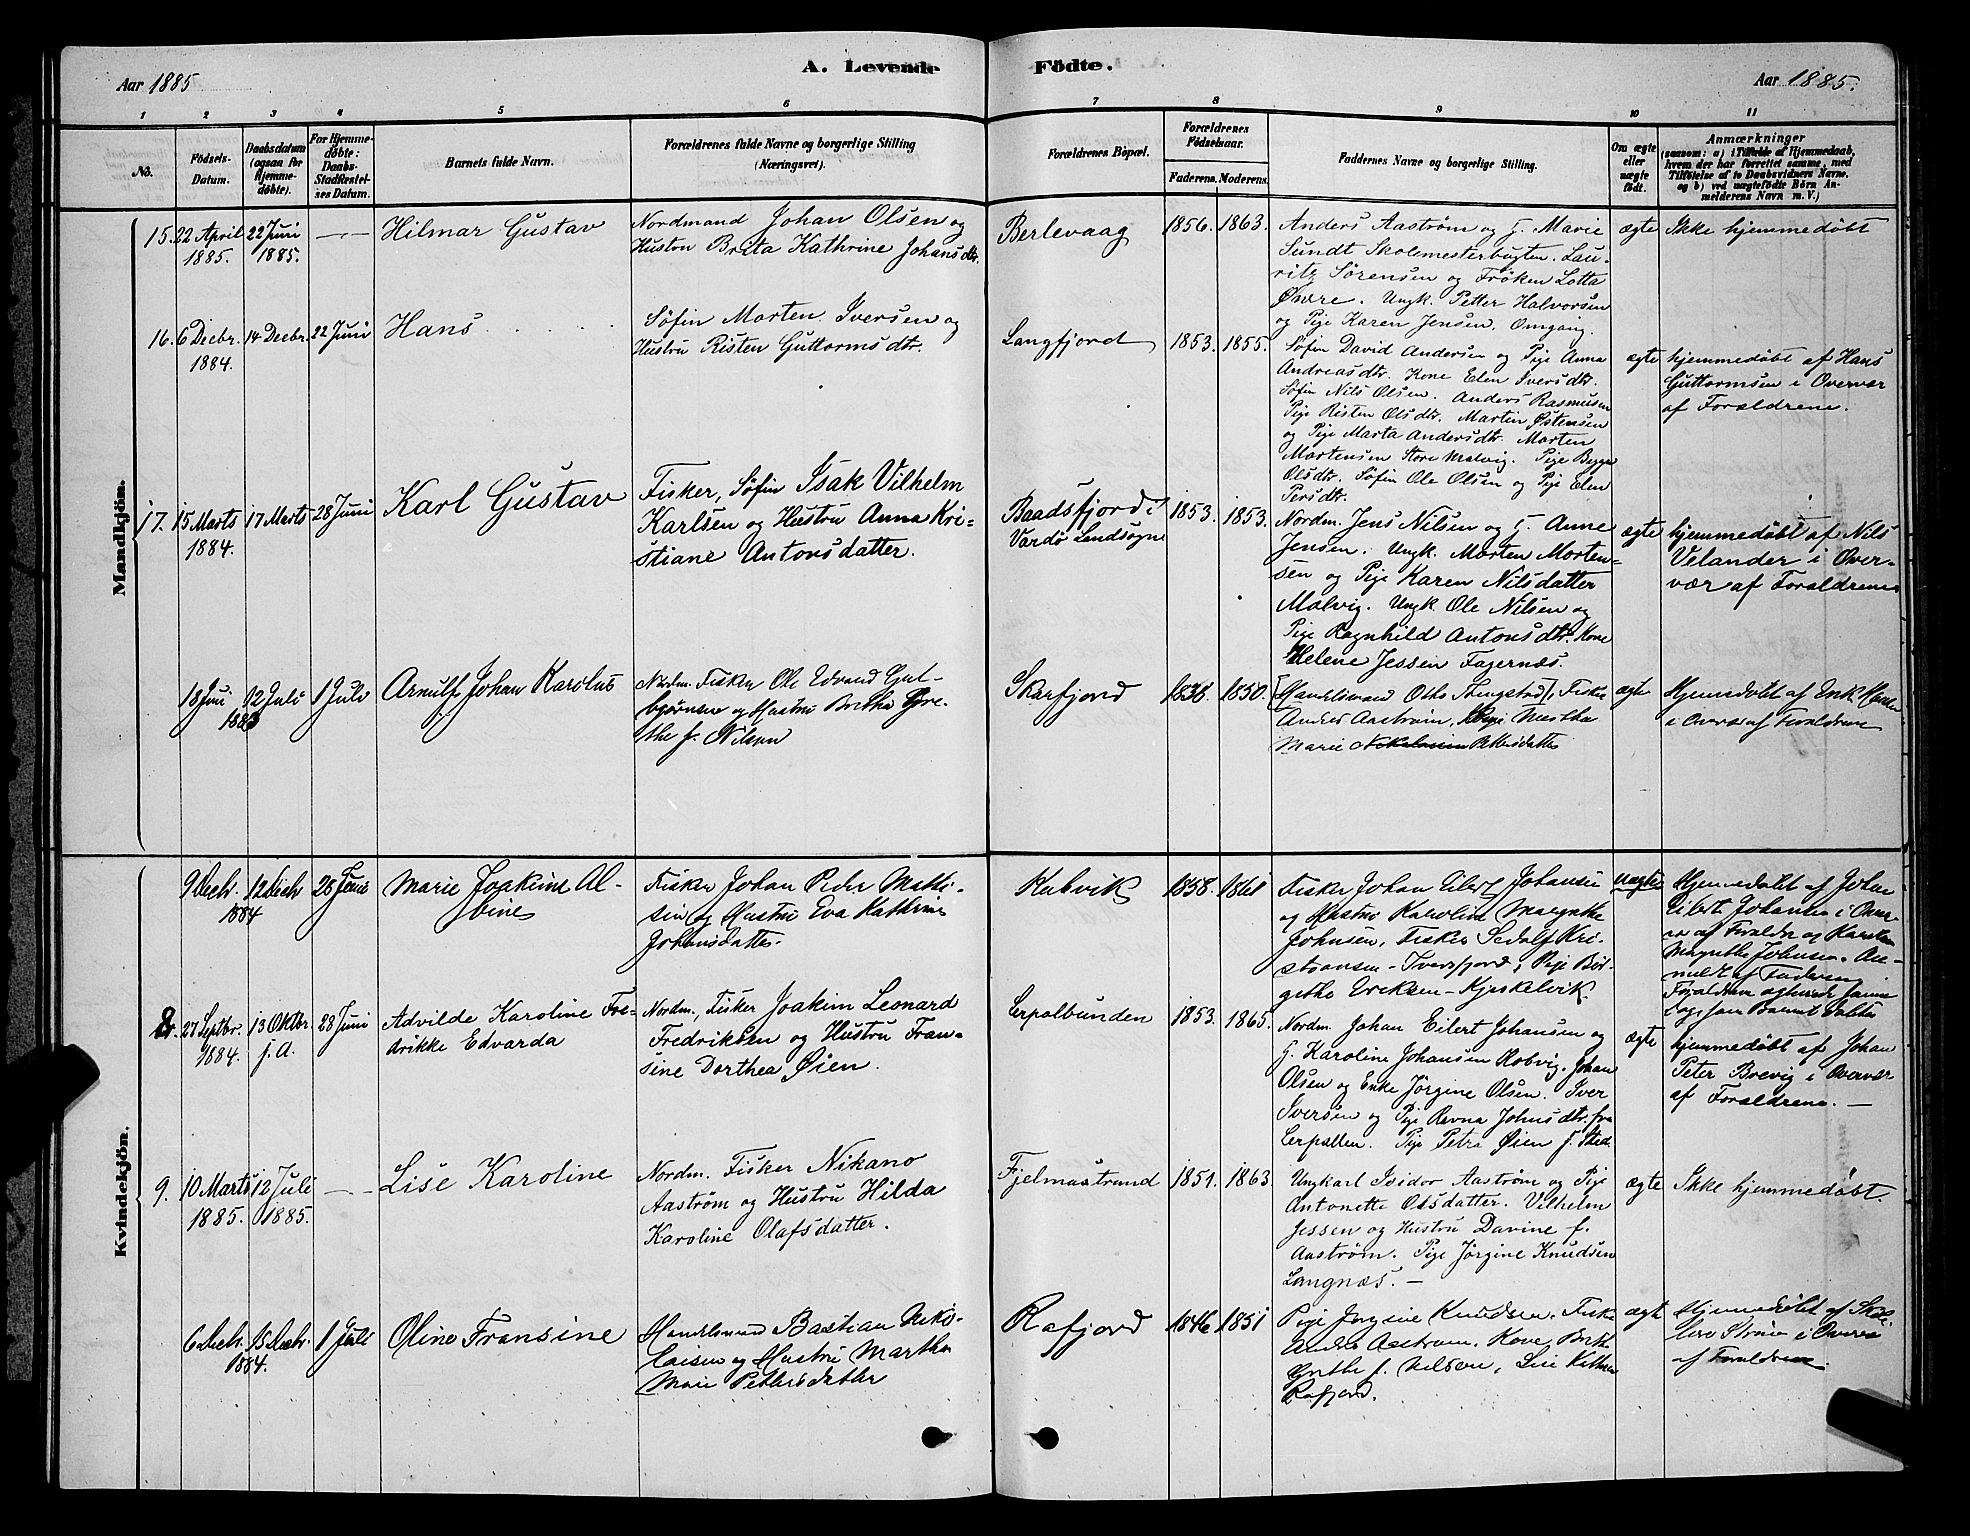 Aar 1885
A. Levende
Födte.
Aar 1885.
1 2 3 4 5 6 7 8 9 10 11
No.
Födsels-
Datum.
Daabsdatum
(ogsaa for
Hjemme-
döbte).
For Hjemme-
döbte:
Daabs-
Stadfæstel-
ses Datum.
Barnets fulde Navn.
Forældrenes fulde Navne og borgerlige Stilling
(Næringsvei).
Forældrenes Bopæl.
Forældrenes
Födselsaar.
Faderens. Moderens.
Faddernes Navne og borgerlige Stilling.
Om ægte
eller
uægte
födt.
Anmærkninger
(saasom: a) i Tilfælde af Hjemmedaab,
hvem der har forrettet samme, med
Tilföielse af to Daabsvidners Navne.
og b) ved uægtefödte Börn An-
melderens Navn m. V.)
Mandkjön.
15. 22 April
1885.
22 Juni
1885.
Hilmar Gustav
Nordmand Johan Olsen og
Hustru Brita Kathrine Johansdtr.
Berlevaag
1856. 1863.
Anders Aaström og f. Marie
Sundt Skolemesterbugten. Lau-
ritz Sörensen og Fröken Lotta
Øwre. Ungk. Petter Halvorsen
og Pige Karen Jensen, Omgang.
ægte
Ikke hjemmedøbt
16. 6 Decbr.
1884.
14 Decbr.
22 Juni
Hans
Søfin Morten Iversen og
Hustru Risten Guttormsdtr.
Langfjord
1853. 1855.
Søfin David Andersen og Pige Anna
Andreasdtr. Kone Elen Iversdtr.
Søfin Nils Olsen. Anders Rasmusen
Pige Risten Olsdtr. Martin Østensen
og Pige Marta Andersdtr. Morten
Mortensen Store Molvig. Pige Berge
Olsdtr. Søfin Ole Olsen og Pige Elen
Persdtr.
ægte
hjemmedøbt af Hans
Guttormsen i Overvær
af Forældrene.
17. 15 Marts
1884.
17 Marts
28 Juni
Karl Gustav
Fisker, Søfin Isak Vilhelm
Karlsen og Hustru Anna Kri-
stiane Antonsdatter.
Baadsfjord i
Vardø Landsogn
1853. 1853.
Nordm. Jens Nilsen og f. Anne
Jensen. Ungk. Morten Morten-
sen og Pige Karen Nilsdatter
Molvig. Ungk. Ole Nilsen og
Pige Ragnhild Antonsdtr. Kone
Helene Jessen Fagernæs.
ægte
hjemmedøbt af Nils
Velander i Over-
vær af Forældrene
18 Juni
1883
12 Juli
1 Juli
Arnulf Johan Karolus
Nordm. Fisker Ole Edvard Gul-
bjørnsen og Hustru Brethe Gre-
the f. Nilsen
Skarfjord
1838. 1850.
Handelsmand Otto Stengstad, Fisker
Anders Aastrøm, Pige Martha
Marie Petersdatter
ægte
Hjemmedøbt af Enk Hansen
i Overvær af Forældrene
Kvindekjön.
9 Decbr.
1884
12 Decbr
28 Juni
Marie Joakine Al-
bine
Fisker Johan Peder Matti-
sen og Hustru Eva Kathrine
Johansdatter.
Kobvik
1858. 1861
Fisker Johan Eilert Johansen
og Hustru Karoline Margrethe
Johnsen, Fisker Sedolf Kri-
stiansen - Iversfjord, Pige Bir-
gethe Eriksen - Kjeskelvik
uægte
Hjemmedøbt af Johan
Eilert Johansen i Over-
vær af Foreldre og Karoline
Magrethe Johansen. An-
meldt af Faderen
8. 27 Septbr.
1884.
13 Oktbr.
f. A.
28 Juni
Advilde Karoline Fre-
drikke Edvarda
Nordm. Fisker Joakim Leonard
Fredriksen og Hustru Fran-
sine Dorthea Øien.
Lerpolbunden
1853. 1865.
Nordm. Johan Eilert Johansen og
f. Karoline Johansen Kobvig. Johan
Olsen og Enke Jörgine Olsen. Iver
Iversen og Pige Ravna Johnsdtr. fra
Lerpollen. Pige Petra Øien f. Sted.
ægte
hjemmedøbt af Johan
Peter Brevig i Overvær
af Forældrene. —
9. 10 Marts
1885.
12 Juli
1885.
Lise Karoline
Nordm. Fisker Nikano
Aaström og Hustru Hilda
Karoline Olafsdatter.
Fjelmastrand
1851. 1863
Ungkarl Isidor Aaström og Pige
Antonette Olsdatter. Vilhelm
Jessen og Hustru Davine f.
Aaström. Pige Jörgine Knudsen
Langnæs. —
ægte
Ikke hjemmedøbt.
6 Decbr.
1884.
15 Decbr.
1 Juli
Oline Fransine
Handelsmand Bastian Niko-
laisen og Hustru Martha
Marie Pettersdatter
Rafjord
1846 1851
Pige Jørgine Knudsen. Fisker
Anders Aastrøm, Kone Brethe
Grethe f. Nilsen, Lise Kathrine
Rafjord.
ægte
Hjemmedøbt af Skole-
lærer Strøm i Overvær
af Forældrene.